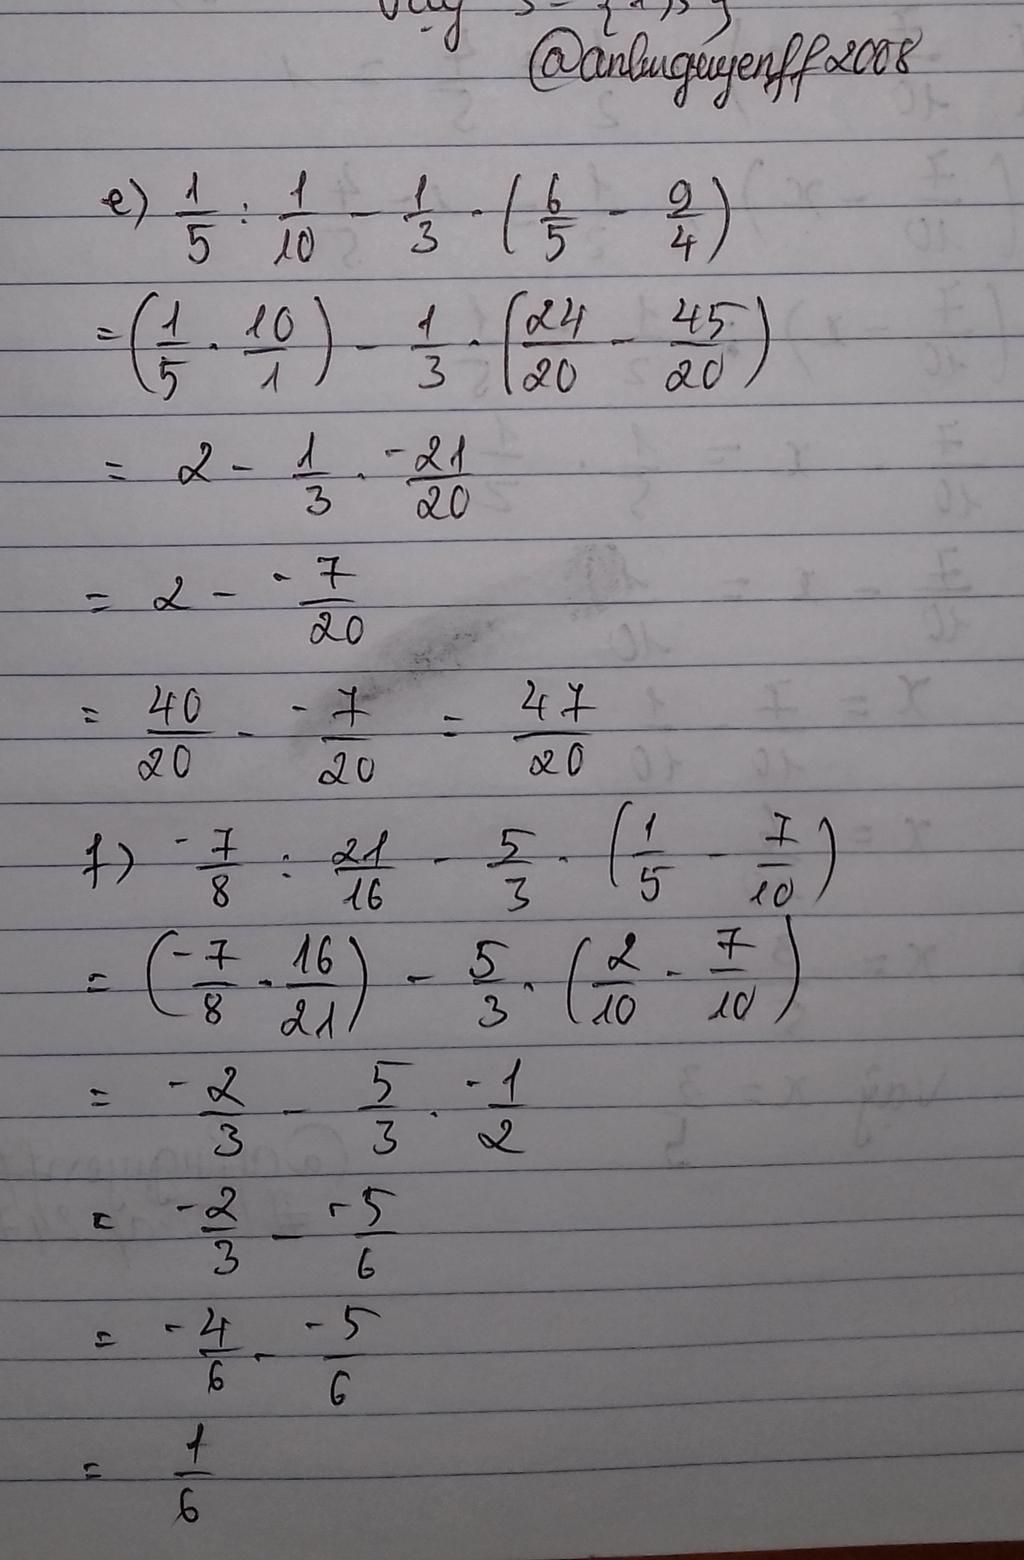 @anbuguyenff2008
e) 1/5 : 1/10 - 1/3 · (6/5 - 9/4)
= (1/5 · 10/1) - 1/3 · (24/20 - 45/20)
= 2 - 1/3 · -21/20
= 2 - -7/20
= 40/20 - -7/20 = 47/20
f) -7/8 : 21/16 - 5/3 · (1/5 - 7/10)
= (-7/8 · 16/21) - 5/3 · (2/10 - 7/10)
= -2/3 - 5/3 · -1/2
= -2/3 - -5/6
= -4/6 - -5/6
= 1/6